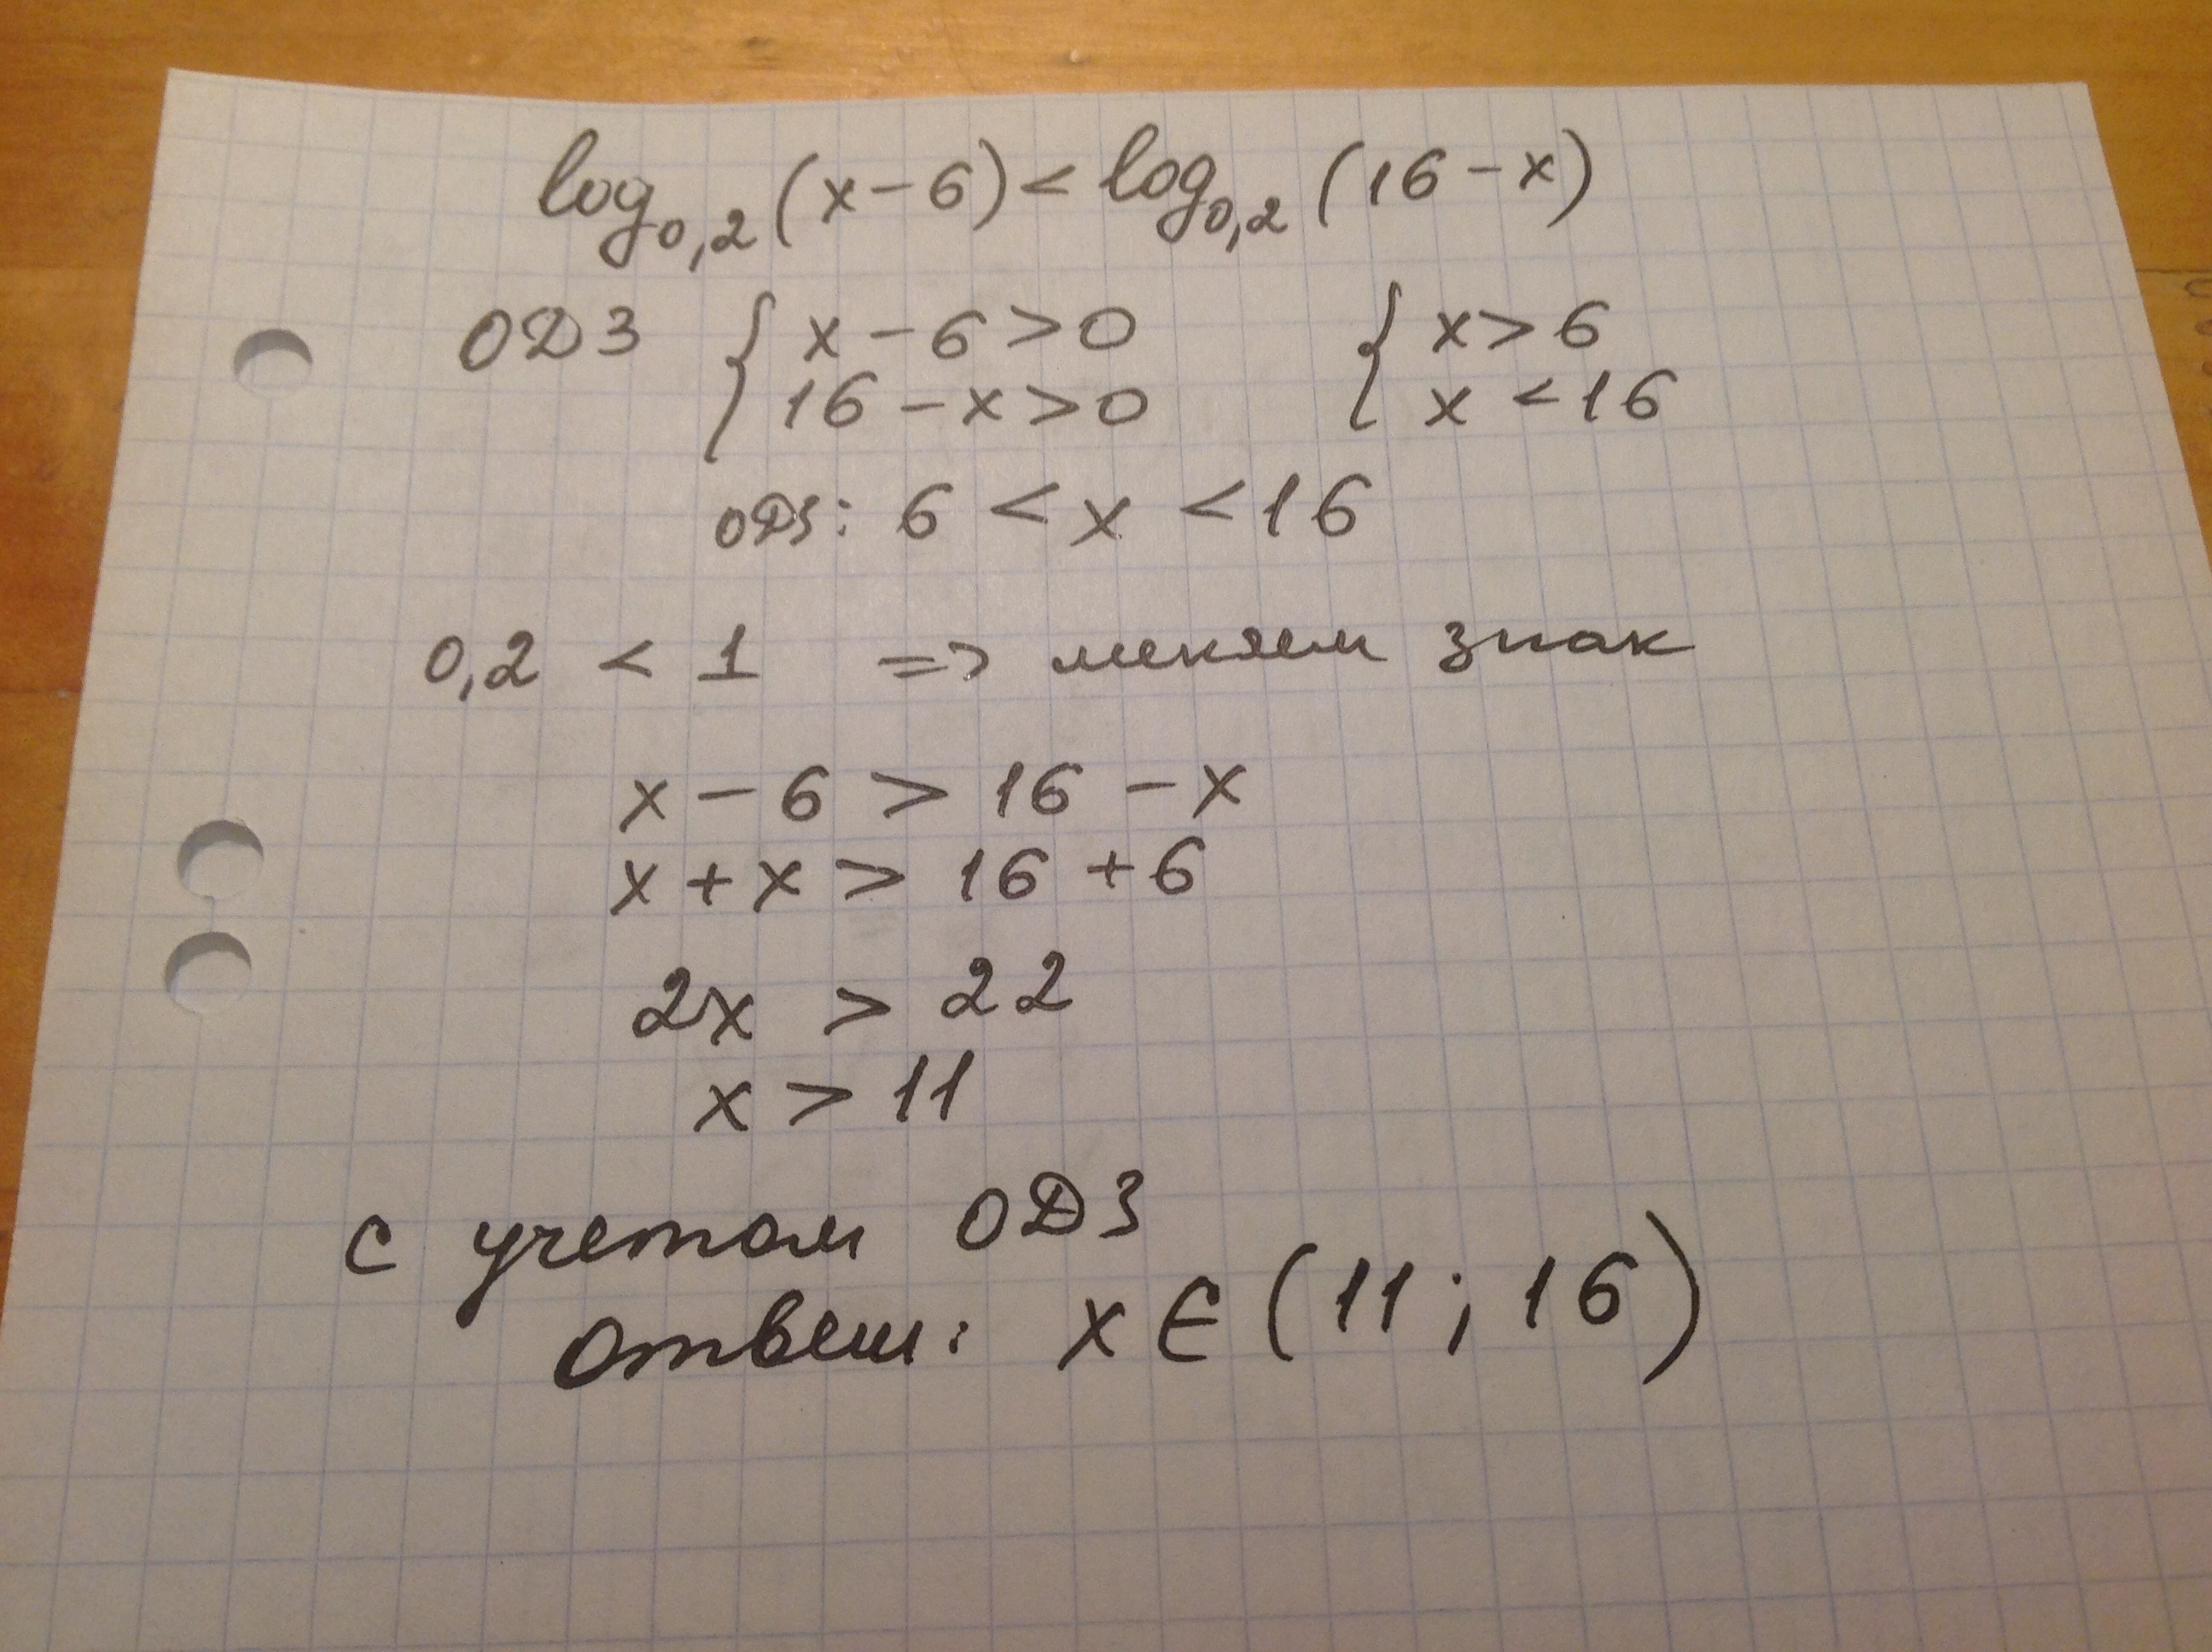 log₀,₂(x-6) < log₀,₂(16-x)
ОДЗ { x-6>0 { x>6
16-x>0 x<16
ОДЗ: 6 < x < 16
0,2 < 1 => меняем знак
x-6 > 16-x
x+x > 16+6
2x > 22
x > 11
с учетом ОДЗ
ответ: x∈(11; 16)